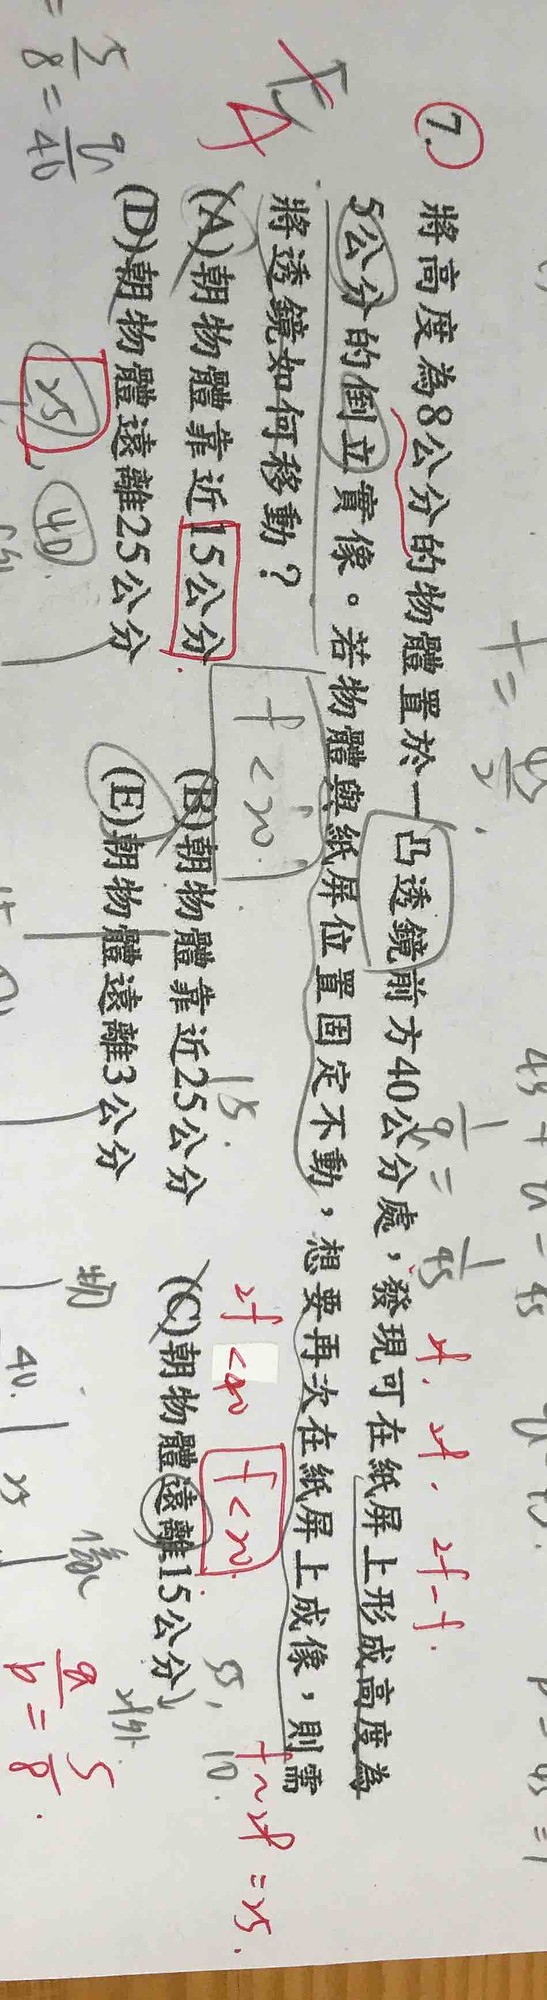 7. 將高度為8公分的物體置於一凸透鏡前方40公分處,發現可在紙屏上形成高度為
5公分的倒立實像。若物體與紙屏位置固定不動,想要再次在紙屏上成像,則需
將透鏡如何移動?
(A)朝物體靠近15公分 (B)朝物體靠近25公分 (C)朝物體遠離15公分
(D)朝物體遠離25公分 (E)朝物體遠離3公分
A
f<20
2f<40
f<20
f~2f=25.
2f-f.
25
40
= 5/8 = q/40
q/p = 5/8.
物
40.
25
像
2f外